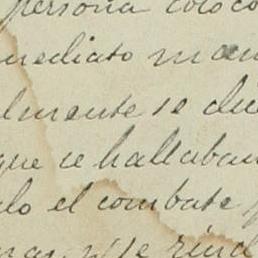 persona coloco
mediato man
lmente se die
que se hallaban
do el combate
se rind